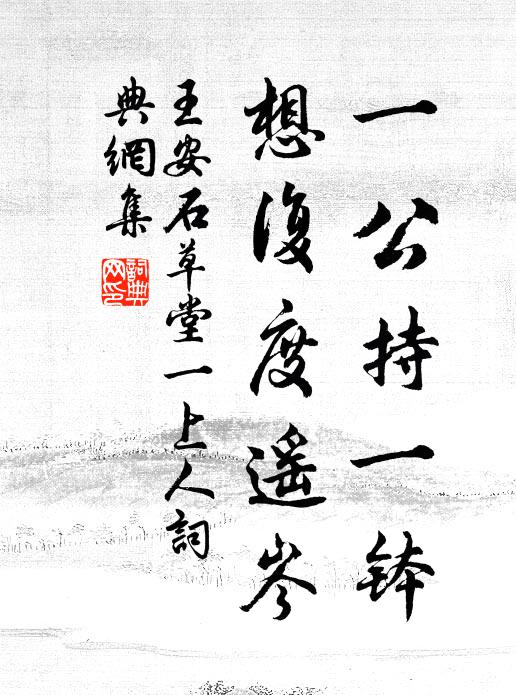 一公持一钵
想復度遥岑
王安石草堂一上人詞
典網集
詞典网印